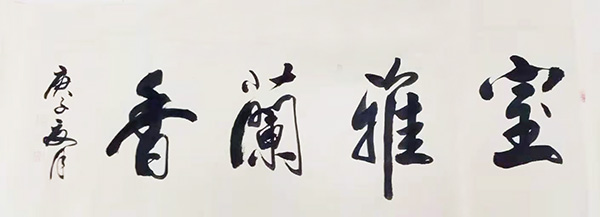 室雅蘭香
庚子夏月